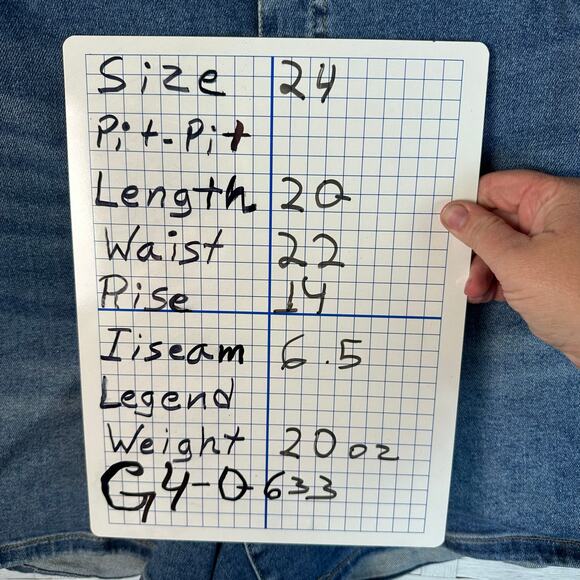 Size 24
Pit-Pit
Length 20
Waist 22
Rise 14
Iiseam 6.5
Legend
Weight 20 oz
G4-0633